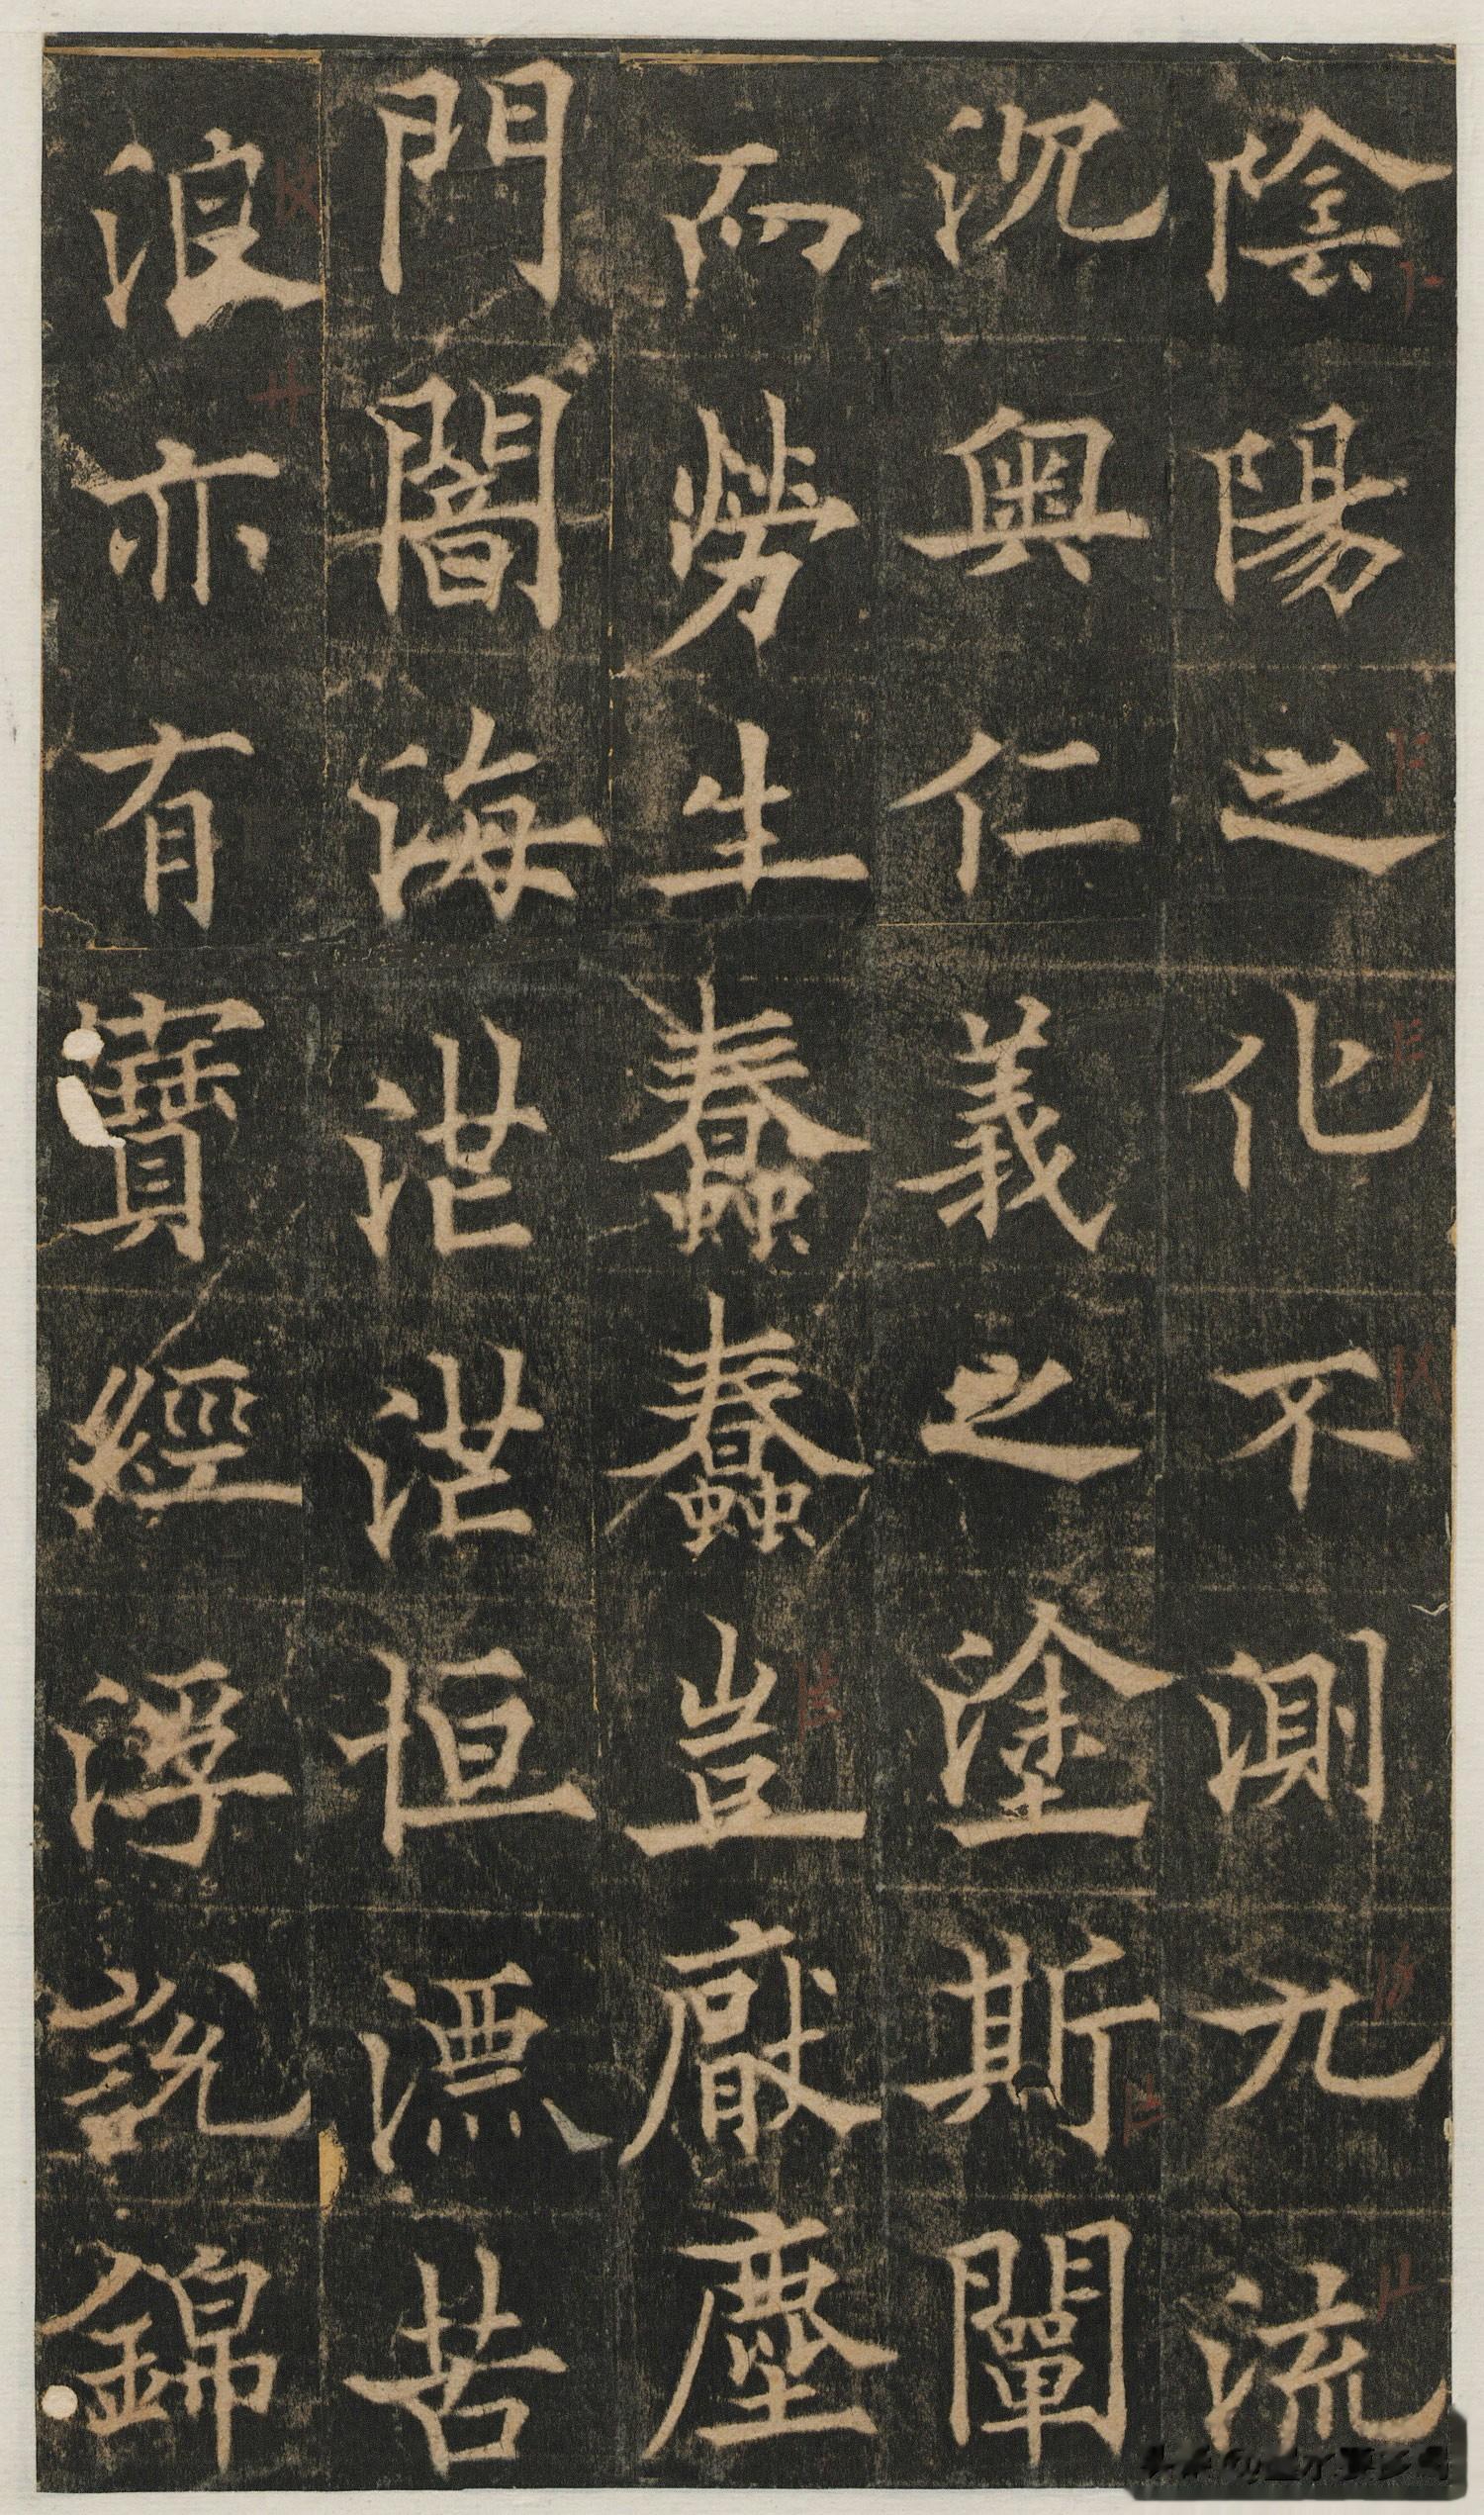 陰陽之化不測九流
沉奧仁義之塗斯闡
而勞生蠢蠢豈厭塵
門闇海茫茫恒漂苦
浪亦有寶經浮說錦